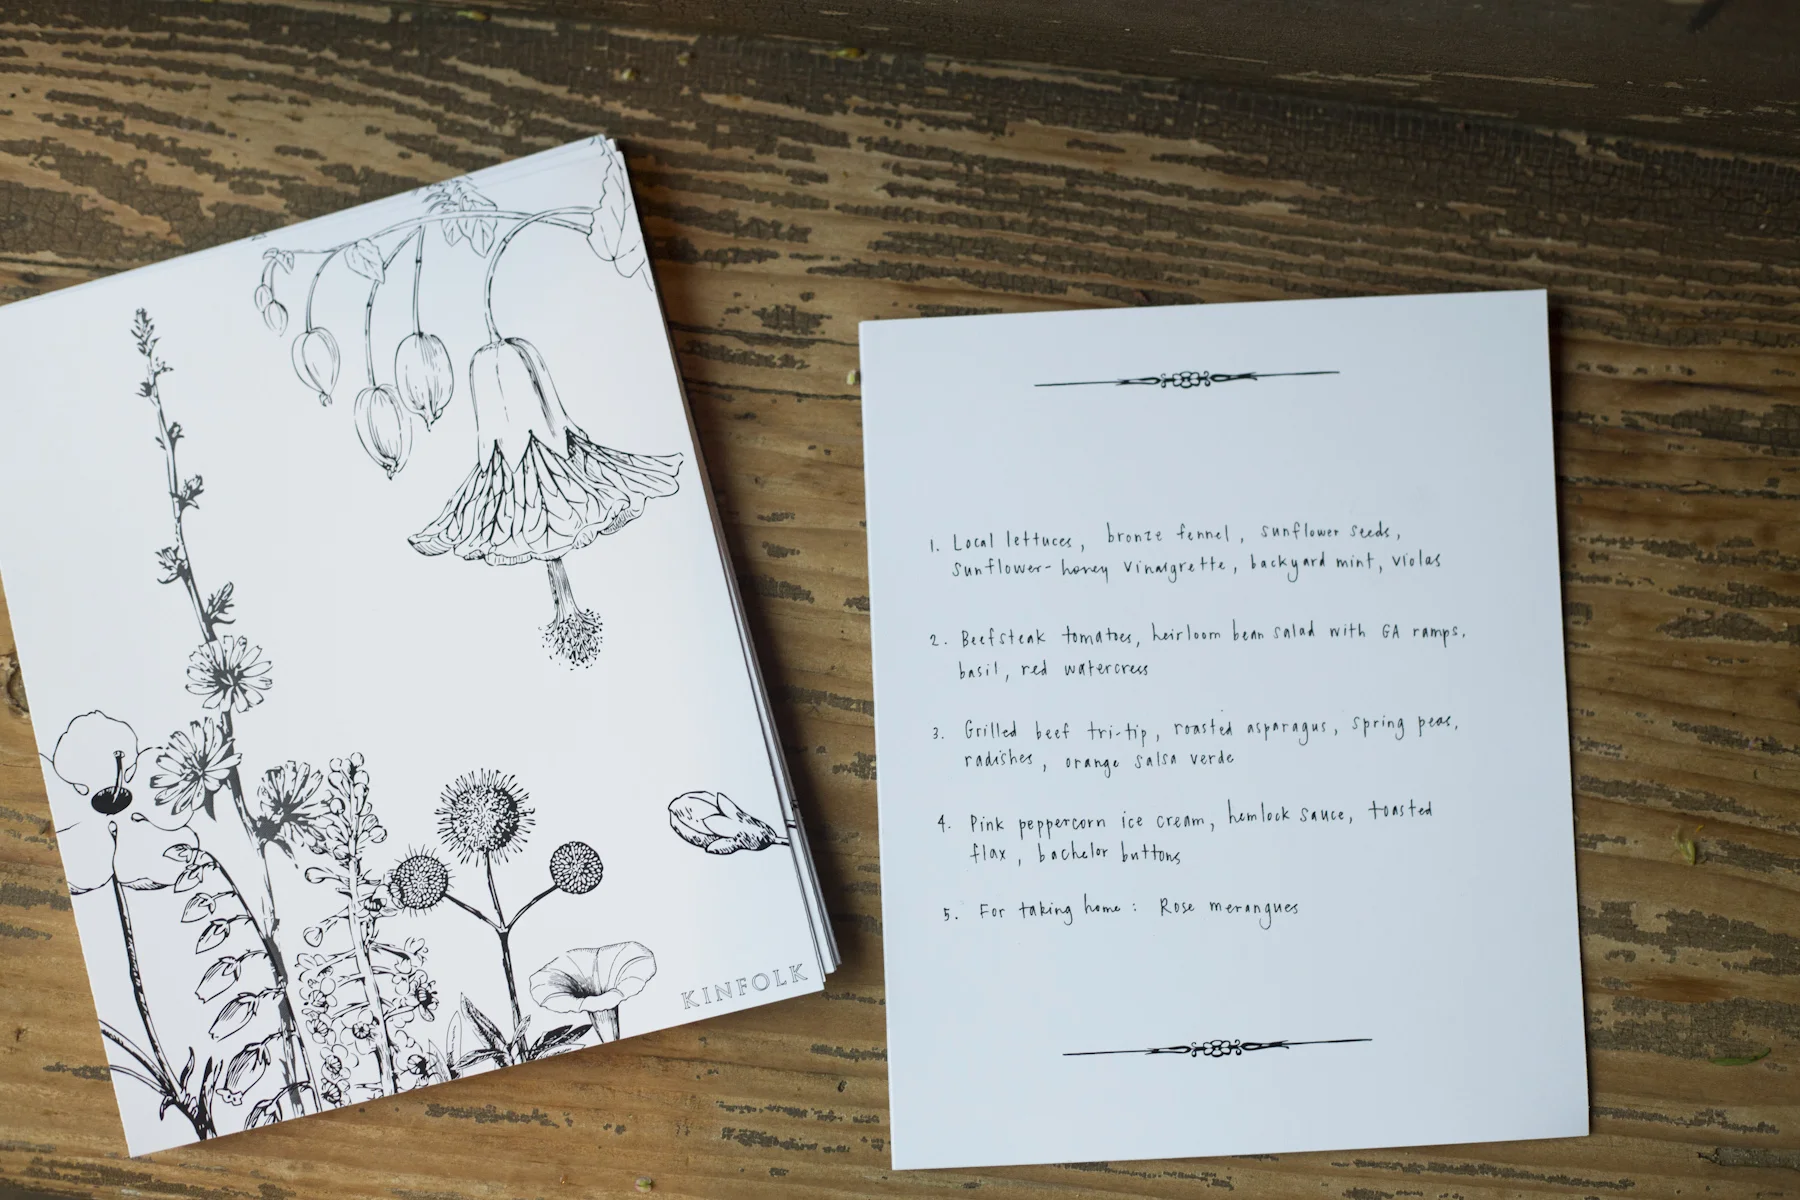 KINFOLK
1. Local lettuces, bronze fennel, sunflower seeds,
sunflower-honey vinaigrette, backyard mint, violas
2. Beefsteak tomatoes, heirloom bean salad with GA ramps,
basil, red watercress
3. Grilled beef tri-tip, roasted asparagus, spring peas,
radishes, orange salsa verde
4. Pink peppercorn ice cream, hemlock sauce, toasted
flax, bachelor buttons
5. For taking home: Rose merangues